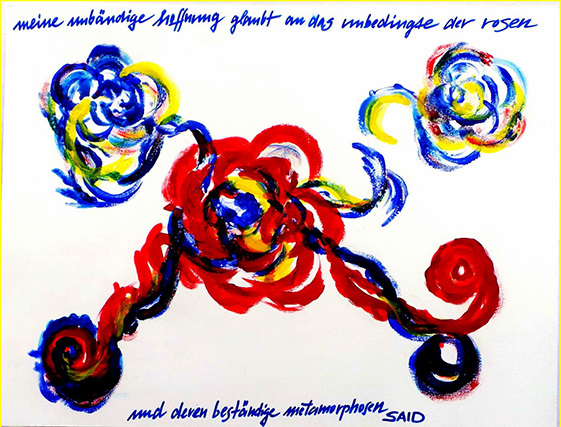 meine unbändige hoffnung glaubt an das unbedingte der rosen
und deren beständige metamorphosen
SAID